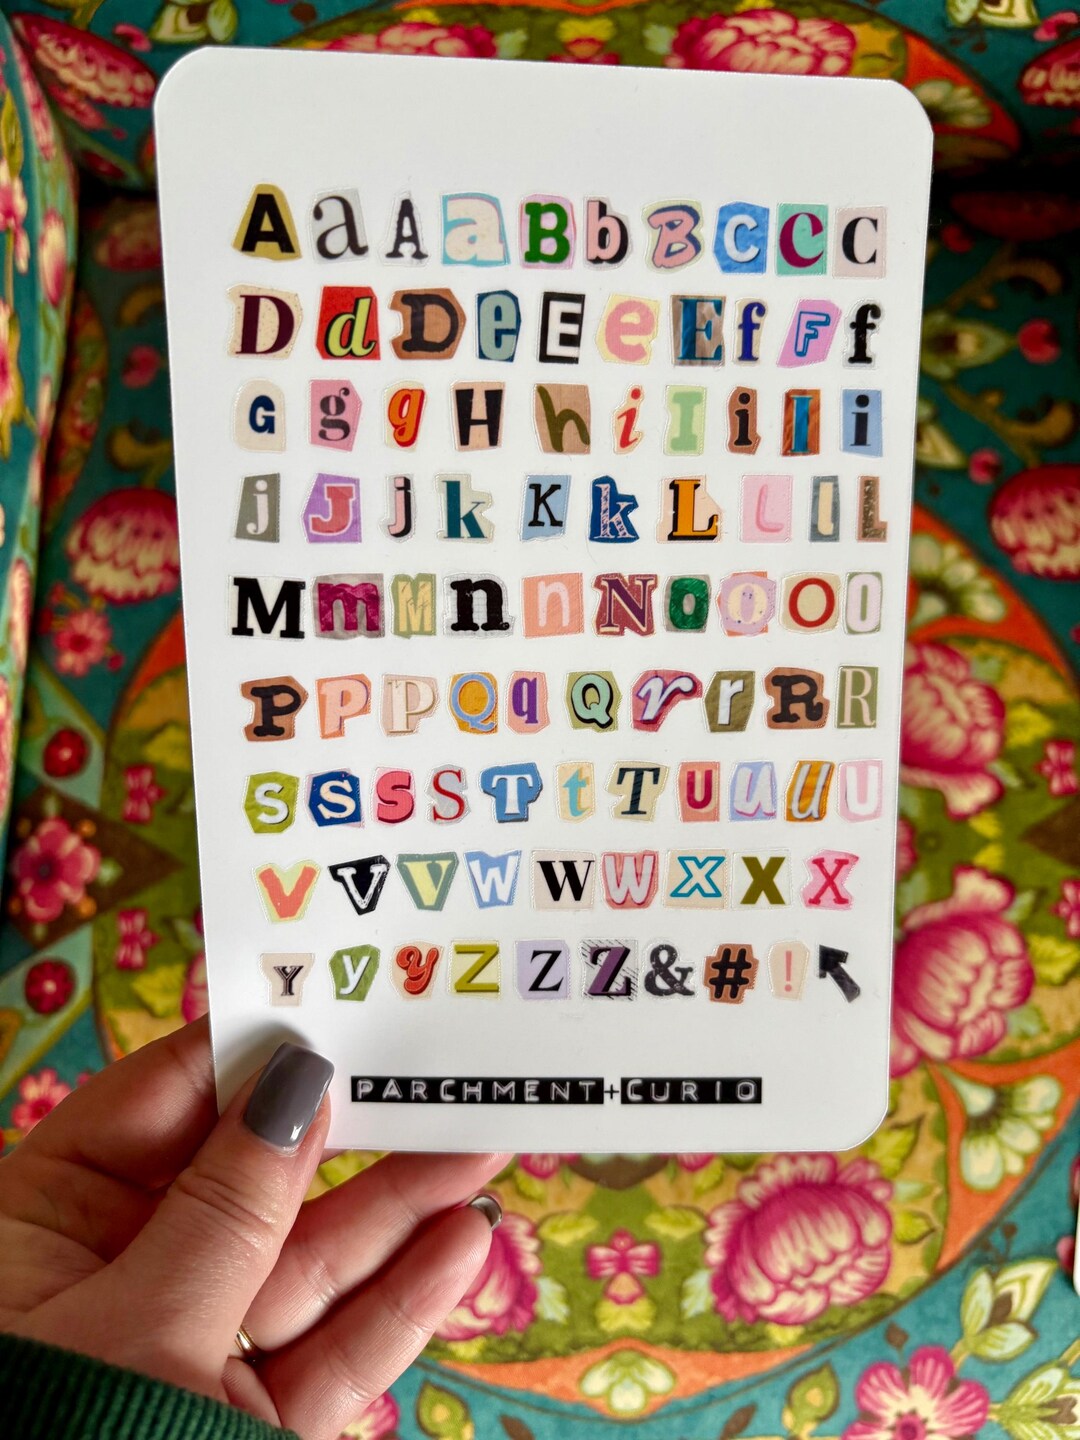 A a A a B b B C C C
D d D e E e E f F f
G g g H h i I i I i
j J j k K k L L l L
M m M n n N o O O O
P P P Q q Q r r R R
S S S S T t T U U U U
V V V W W W X X X
Y y y Z Z Z & # !
PARCHMENT+CURIO